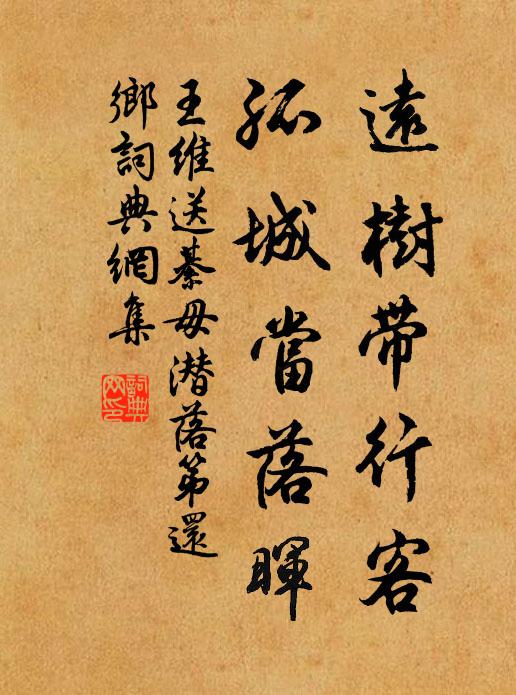 遠樹帶行客
孤城當落暉
王維送綦毋潜落第還
鄉詞典網集
詞典网印